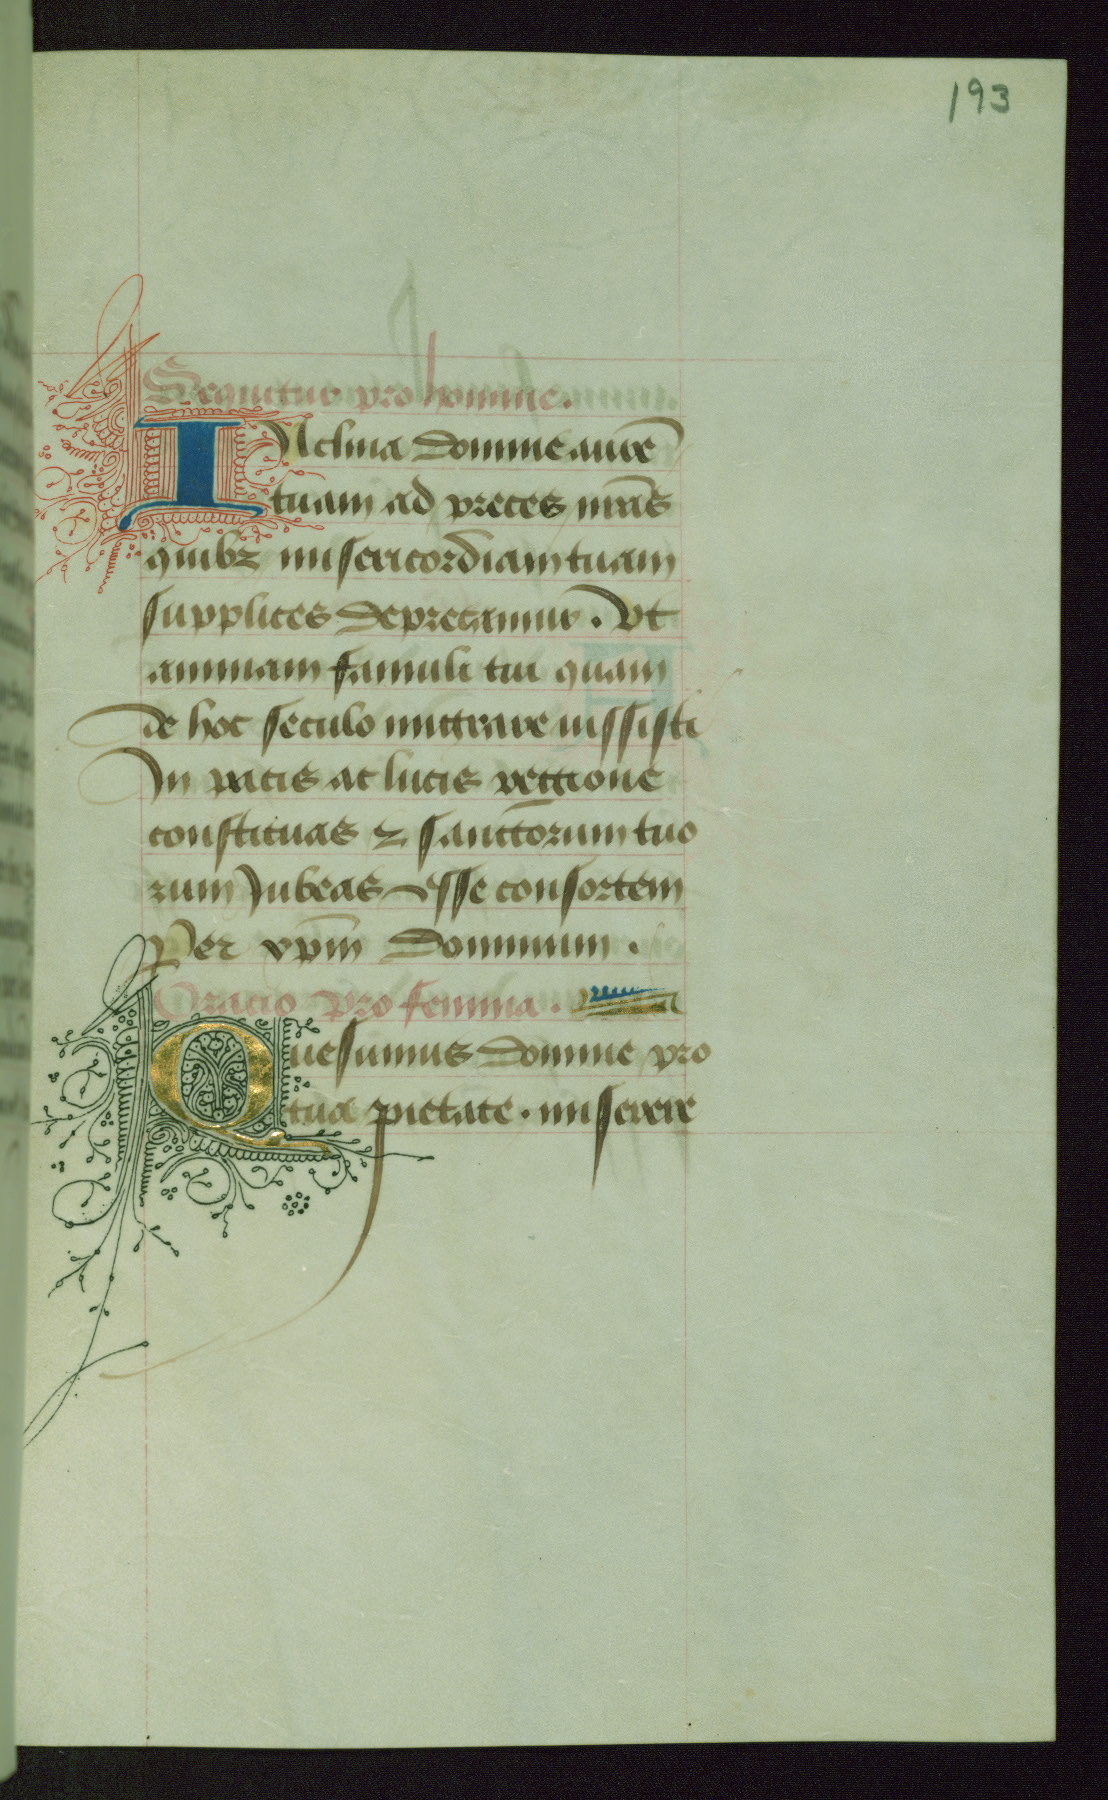 193
Sequitur pro homine.
INclina domine aurē
tuam ad preces nrās
quibꝫ misericordiam tuam
supplices deprecamur. Vt
animam famuli tui quam
de hoc seculo migrare iussisti
In pacis ac lucis regione
constituas ⁊ sanctorum tuo
rum Jubeas esse consortem
Per xpm̄ Dominum.
Oracio pro femina.
Quesumus domine pro
tua pietate. miserere